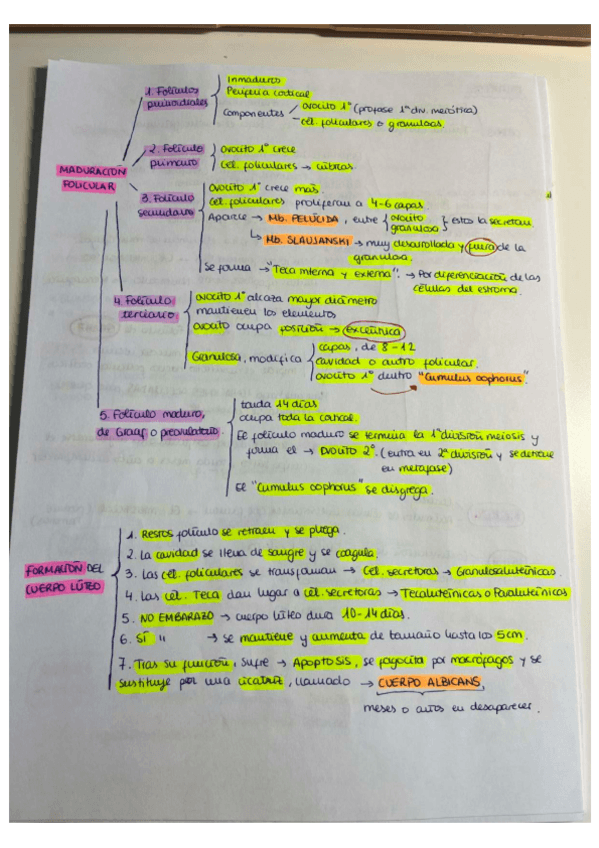 MADURACIÓN FOLICULAR
1. Folículos primordiales
Inmaduros
Periferia cortical
Componentes
ovocito 1º (profase 1ª div. meiótica)
cél. foliculares o granulosas
2. Folículo primario
Ovocito 1º crece
Cél. foliculares → cúbicas
3. Folículo secundario
Ovocito 1º crece más.
Cél. foliculares proliferan a 4-6 capas.
Aparece → Mb. PELÚCIDA, entre ovocito granulosa } estos la secretan
↳ Mb. SLAUJANSKI → muy desarrollada y fuera de la granulosa.
Se forma → "Teca interna y externa". → Por diferenciación de las células del estroma.
4. Folículo terciario
Ovocito 1º alcanza mayor diámetro
mantienen los elementos
Ovocito ocupa posición → excéntrica
Granulosa, modifica
capas, de 8-12
Cavidad o antro folicular.
Ovocito 1º dentro "Cumulus oophorus".
5. Folículo maduro, de Graaf o preovulatorio.
tarda 14 días
ocupa toda la cortical.
El folículo maduro se termina la 1ª división meiosis y
forma el → Ovocito 2º. (entra en 2ª división y se detiene
en metafase)
El "Cumulus oophorus" se disgrega.
FORMACIÓN DEL CUERPO LÚTEO
1. Restos folículo se retraen y se pliega.
2. La cavidad se llena de sangre y se coagula.
3. Las cél. foliculares se transforman → Cél. secretoras → Granulosaluteínicas.
4. Las cél. Teca dan lugar a cél. secretoras → Tecaluteínicas o Paraluteínicas
5. NO EMBARAZO → cuerpo lúteo dura 10-14 días.
6. SÍ " → se mantiene y aumenta de tamaño hasta los 5cm.
7. Tras su función, sufre → Apoptosis, se fagocita por macrófagos y se
sustituye por una cicatriz, llamado → CUERPO ALBICANS,
meses o años en desaparecer.